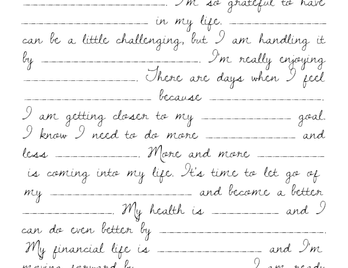 ____________________. I'm so grateful to have
____________________ in my life.
can be a little challenging, but I am handling it
by ____________________. I'm really enjoying
____________________. There are days when I feel
____________________ because ____________________.
I am getting closer to my ____________________ goal.
I know I need to do more ____________________ and
less ____________________. More and more ____________________
is coming into my life. It's time to let go of
my ____________________ and become a better
____________________. My health is ____________________ and I
can do even better by ____________________.
My financial life is ____________________ and I'm
moving forward by ____________________. I am ready